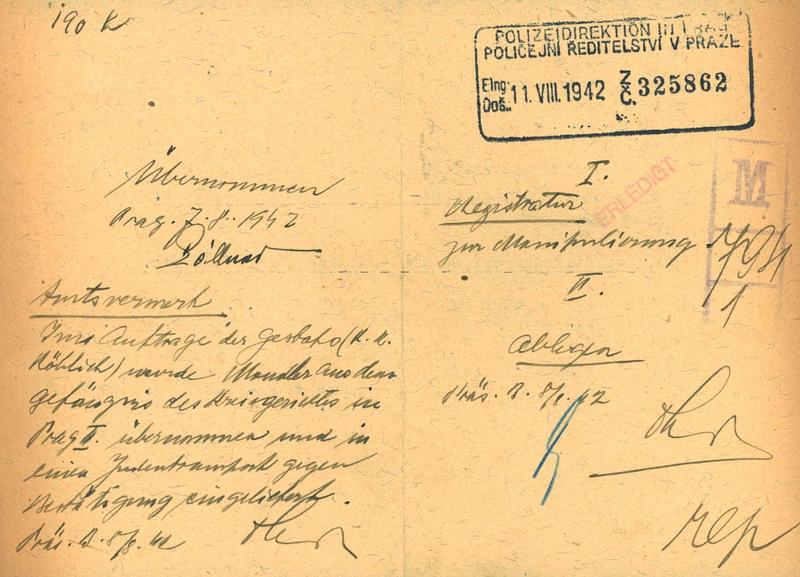 190 K
Übernommen
Prag. 7.8. 1942
Amtsvermerk
Im Auftrage der Gestapo (K. K.
Röhlich) wurde Mandler aus dem
Gefängnis des Kriegerichtes in
Prag II. übernommen und in
einen Judentransport gegen
Bestätigung eingeliefert.
Präs. B. 8/8. 42
POLIZEIDIREKTION IN PRAG
POLICEJNÍ ŘEDITELSTVÍ V PRAZE
Eing.
Doš.. 11. VIII. 1942 Z. Č. 325862
I.
ERLEDIGT
M
Registratur
zur Manipulierung
II.
Ablegen
Präs. B. 8/8. 42
1
rep